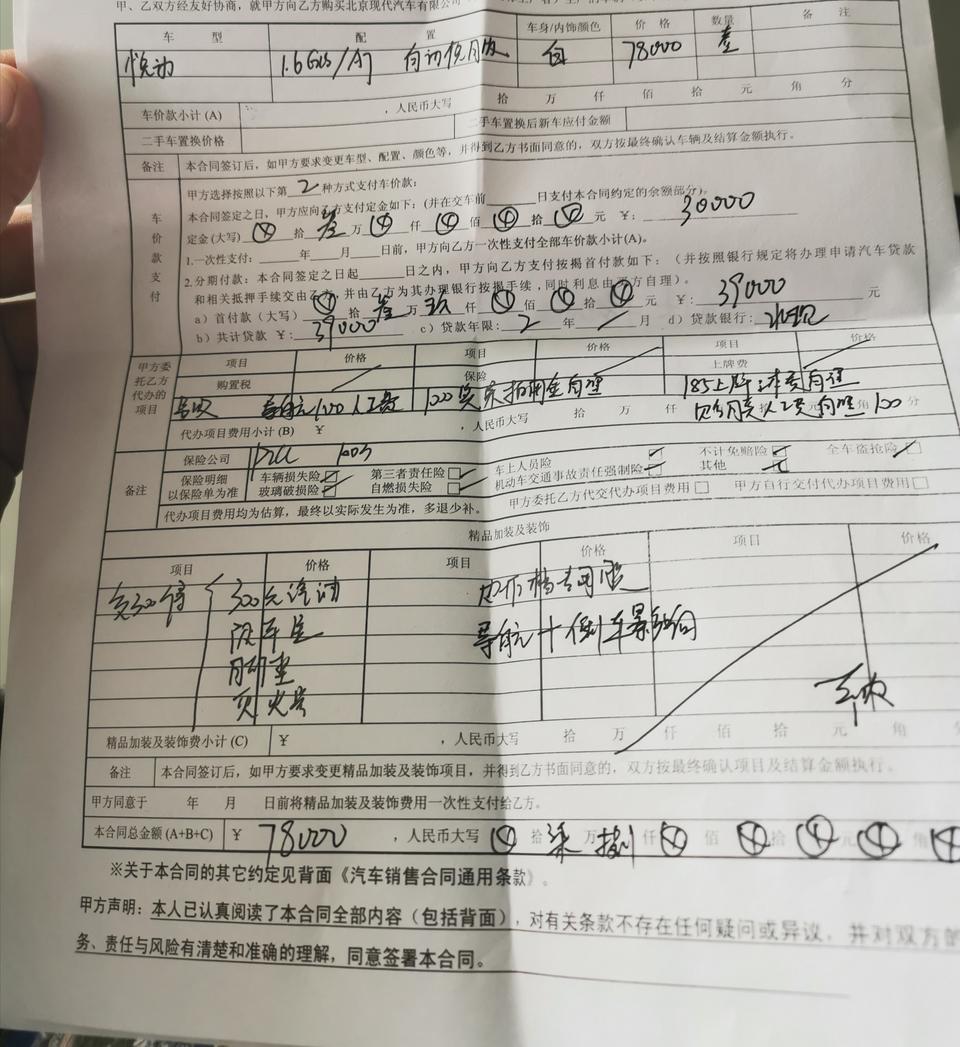 甲、乙双方经友好协商，就甲方向乙方购买北京现代汽车有限公司
车 型 配 置 车身/内饰颜色 价 格 数量 备 注
悦动 1.6 白 78000
车价款小计(A) ，人民币大写 拾 万 仟 佰 拾 元 角 分
二手车置换价格 二手车置换后新车应付金额
备注 本合同签订后，如甲方要求变更车型、配置、颜色等，并得到乙方书面同意的，双方按最终确认车辆及结算金额执行。
车价款支付
甲方选择按照以下第 2 种方式支付车价款：
本合同签定之日，甲方应向乙方支付定金如下：(并在交车前 日支付本合同约定的余额部分)。
定金(大写) 拾 叁 万 仟 佰 拾 元 ￥： 30000
1.一次性支付： 年 月 日前，甲方向乙方一次性支付全部车价款小计(A)。
2.分期付款：本合同签定之日起 日之内，甲方向乙方支付按揭首付款如下：（并按照银行规定将办理申请汽车贷款
和相关抵押手续交由乙方，并由乙方为其办理银行按揭手续，同时利息由甲方自理）。
a）首付款（大写） 拾 叁 万 玖 仟 佰 拾 元 ￥： 39000 元
b）共计贷款 ￥： 39000 c）贷款年限： 2 年 月 d）贷款银行：
甲方委托乙方代办的项目 项目 价格 项目 价格 项目 价格
购置税 保险 上牌费
导航 100 人工费 自理 185上牌 自理
代办项目费用小计 (B) ￥ ，人民币大写 拾 万 仟 元 角 分
自理 100
备注 保险公司
保险明细以保险单为准 车辆损失险 第三者责任险 车上人员险 不计免赔险 全车盗抢险
玻璃破损险 自燃损失险 机动车交通事故责任强制险 其他
甲方委托乙方代交代办项目费用 甲方自行交付代办项目费用
代办项目费用均为估算，最终以实际发生为准，多退少补。
精品加装及装饰
项目 价格 项目 价格 项目 价格
300元
导航+倒车影像
精品加装及装饰费小计(C) ￥ ，人民币大写 拾 万 仟 佰 拾 元 角 分
备注 本合同签订后，如甲方要求变更精品加装及装饰项目，并得到乙方书面同意的，双方按最终确认项目及结算金额执行。
甲方同意于 年 月 日前将精品加装及装饰费用一次性支付给乙方。
本合同总金额 (A+B+C) ￥ 78000 ，人民币大写 拾 柒 万 捌 仟 佰 拾 元 角
※关于本合同的其它约定见背面《汽车销售合同通用条款》。
甲方声明：本人已认真阅读了本合同全部内容（包括背面），对有关条款不存在任何疑问或异议，并对双方的
务、责任与风险有清楚和准确的理解，同意签署本合同。